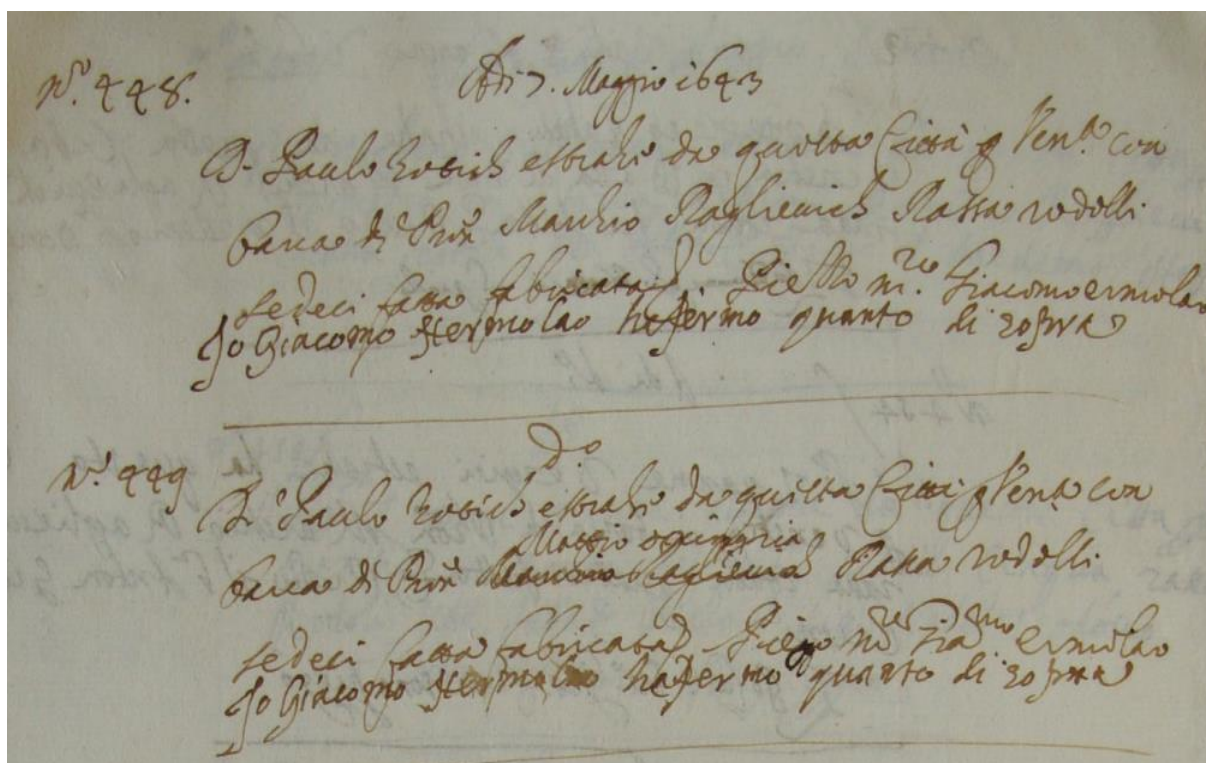 Nº. 448.
Adi 7. Maggio 1643
Dº Paulo Rosich estrahe da questa Città p Venª con
barca di Pron Marchio Raglievich Rassa rodolli
sedeci fatta fabricata d. Piezzo mº Giacomo ermolao
Jo Giacomo Hermolao hafermo quanto di sopra
Dº
Nº 449
Dº Paulo Rosich estrahe da questa Città p Venª con
Mattio
barca di Pron Rassa rodolli
sedeci fatta fabricata d Piezo mº Giacmo ermolao
Jo Giacomo Hermolao hafermo quanto di sopra